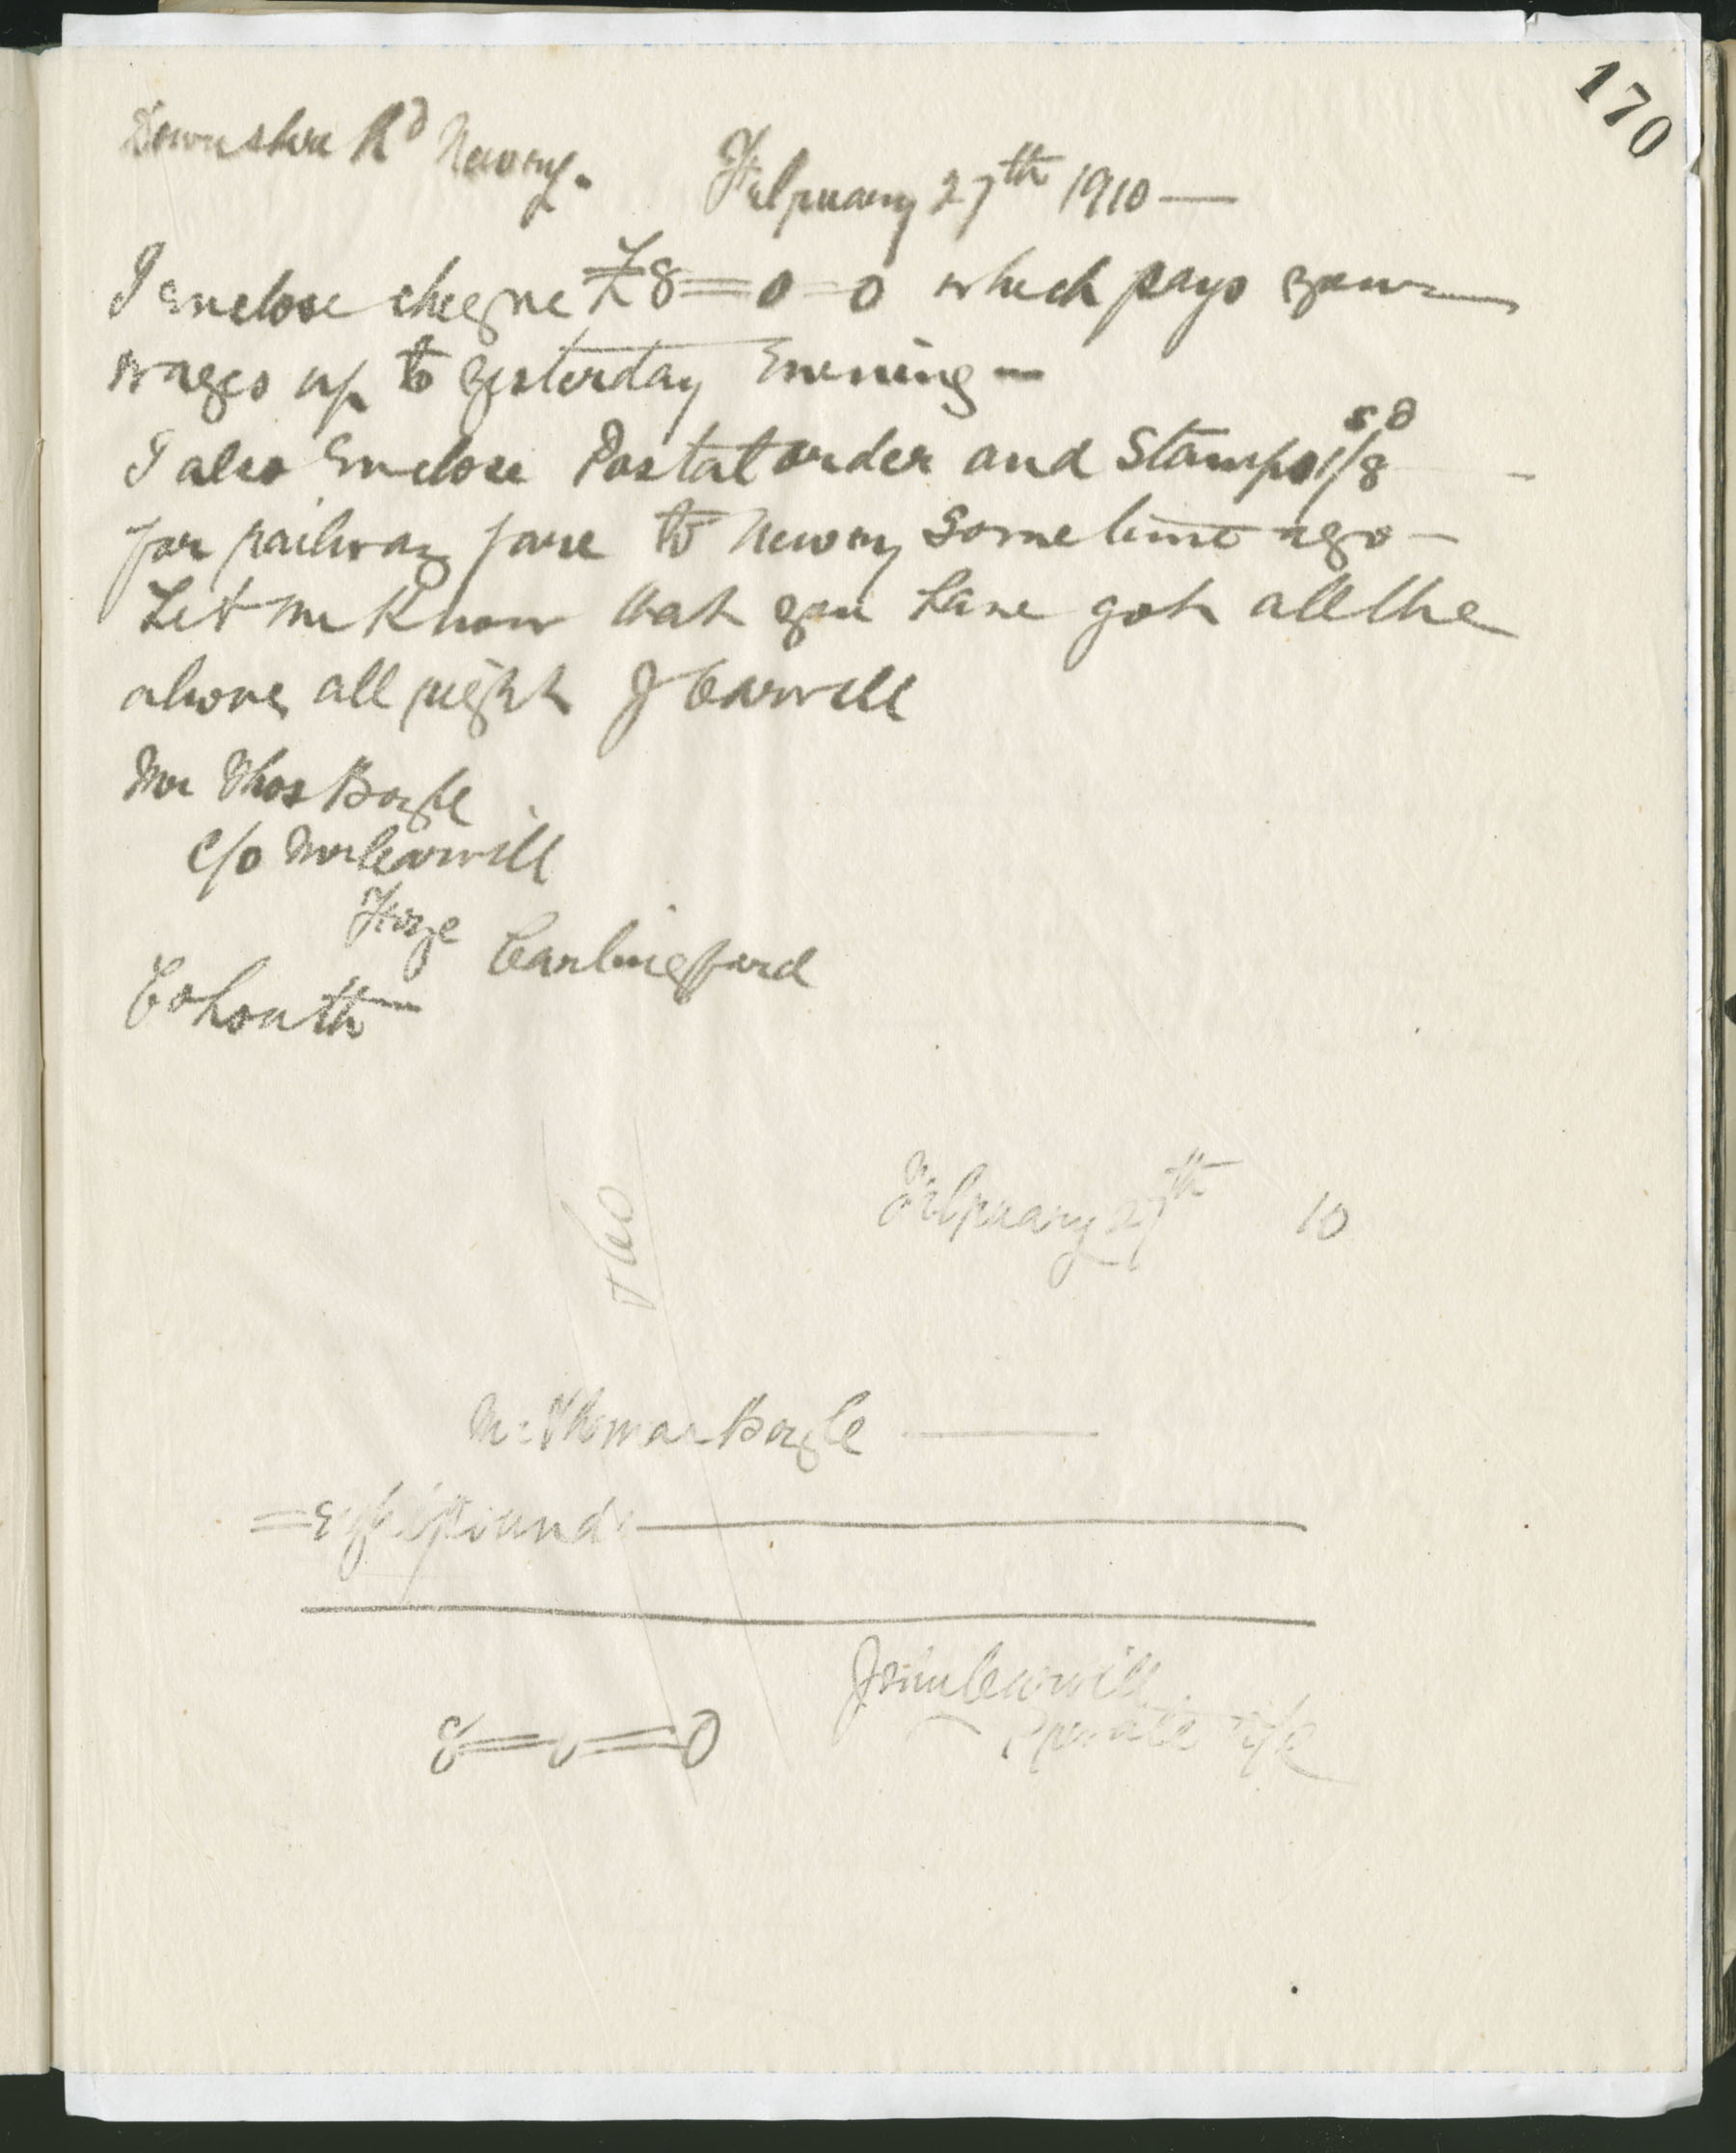 170
Downshire Rd Newry. February 27th 1910 —
I enclose cheque £8=0=0 which pays your
wages up to yesterday Evening —
I also Enclose Postal order and Stamps 1s/8d -
for railway fare to Newry Sometime ago —
Let me Know that you have got all the
above all right J Carvill
Mr Thos Boyle
c/o Mr Carvill
Carlingford
Co Louth
February 27th 10
Mr Thomas Boyle
= Eight pounds
8=0=0 John Carvill
Private a/c